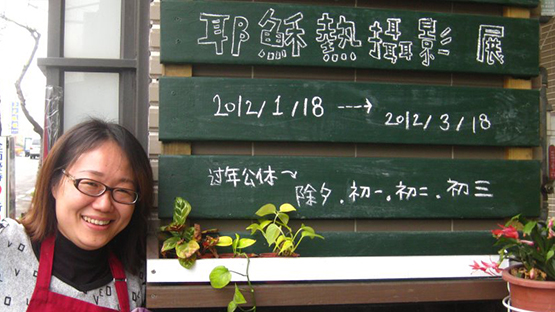 耶穌熱攝影展
2012/1/18 ---→ 2012/3/18
过年公休~
除夕.初一.初二.初三